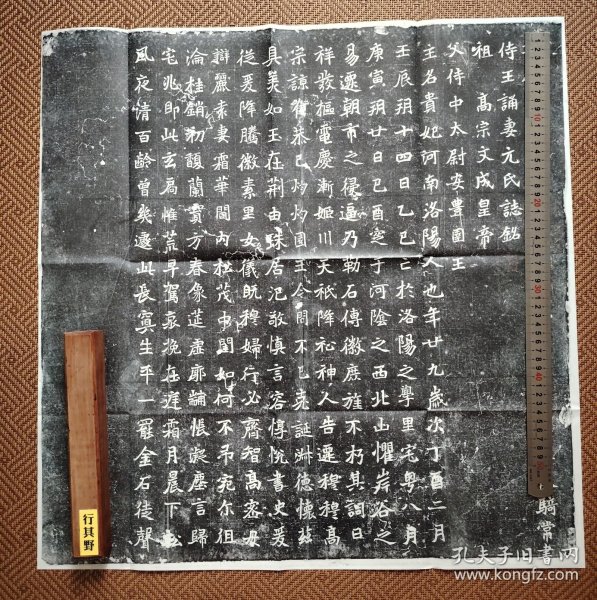 侍王誦妻元氏誌銘
祖高宗文成皇帝
父侍中太尉安豐圉王
主名貴妃河南洛陽人也年廿九歲次丁酉二月
壬辰玥十四日乙巳亡於洛陽之學里宅粤八月
庚寅玥廿日己酉窆于河陰之西北山懼岸谷之
易遷朝市之侵逼乃勒石傳徽庶旌不朽其詞曰
祥發樞電慶漸姬川天祇降祉神人告遷穆穆高
宗諒哉恭己灼灼圉王令問不已克誕淋德懷茲
具美如王在荆由珠居氾敬慎言容惇悅書史爰
從爰降騰徽素里女儀既穆婦行必齊智高密母
辯麗袁妻霜華閫內松茂中閨如何不弔宛尔徂
淪桂銷初馥蘭實方春像筵虛廓黼帳凝塵言歸
宅兆即此玄扃惟荒早駕哀挽在遅霜月晨下松
風夜清百齡曾幾遽此長冥生平一罷金石徒聲
驕常
行其野
孔夫子旧書网
www.kongfz.com